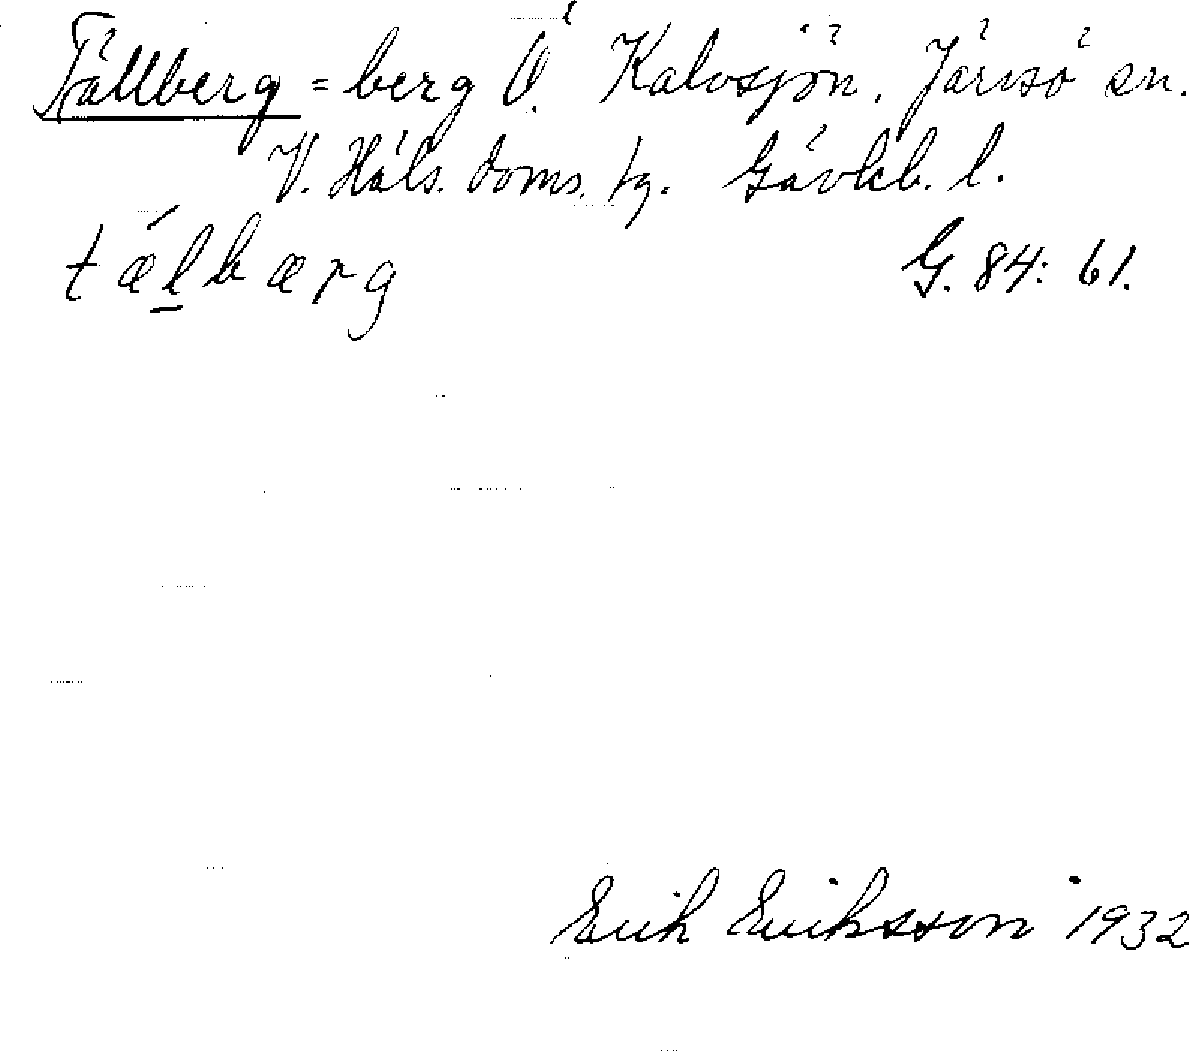 Tällberg = berg Ö. Kalvsjön. Järvsö sn.
V. Häls. doms. tg. Gävleb. l.
tælbærg G. 84: 61.
Erik Eriksson 1932